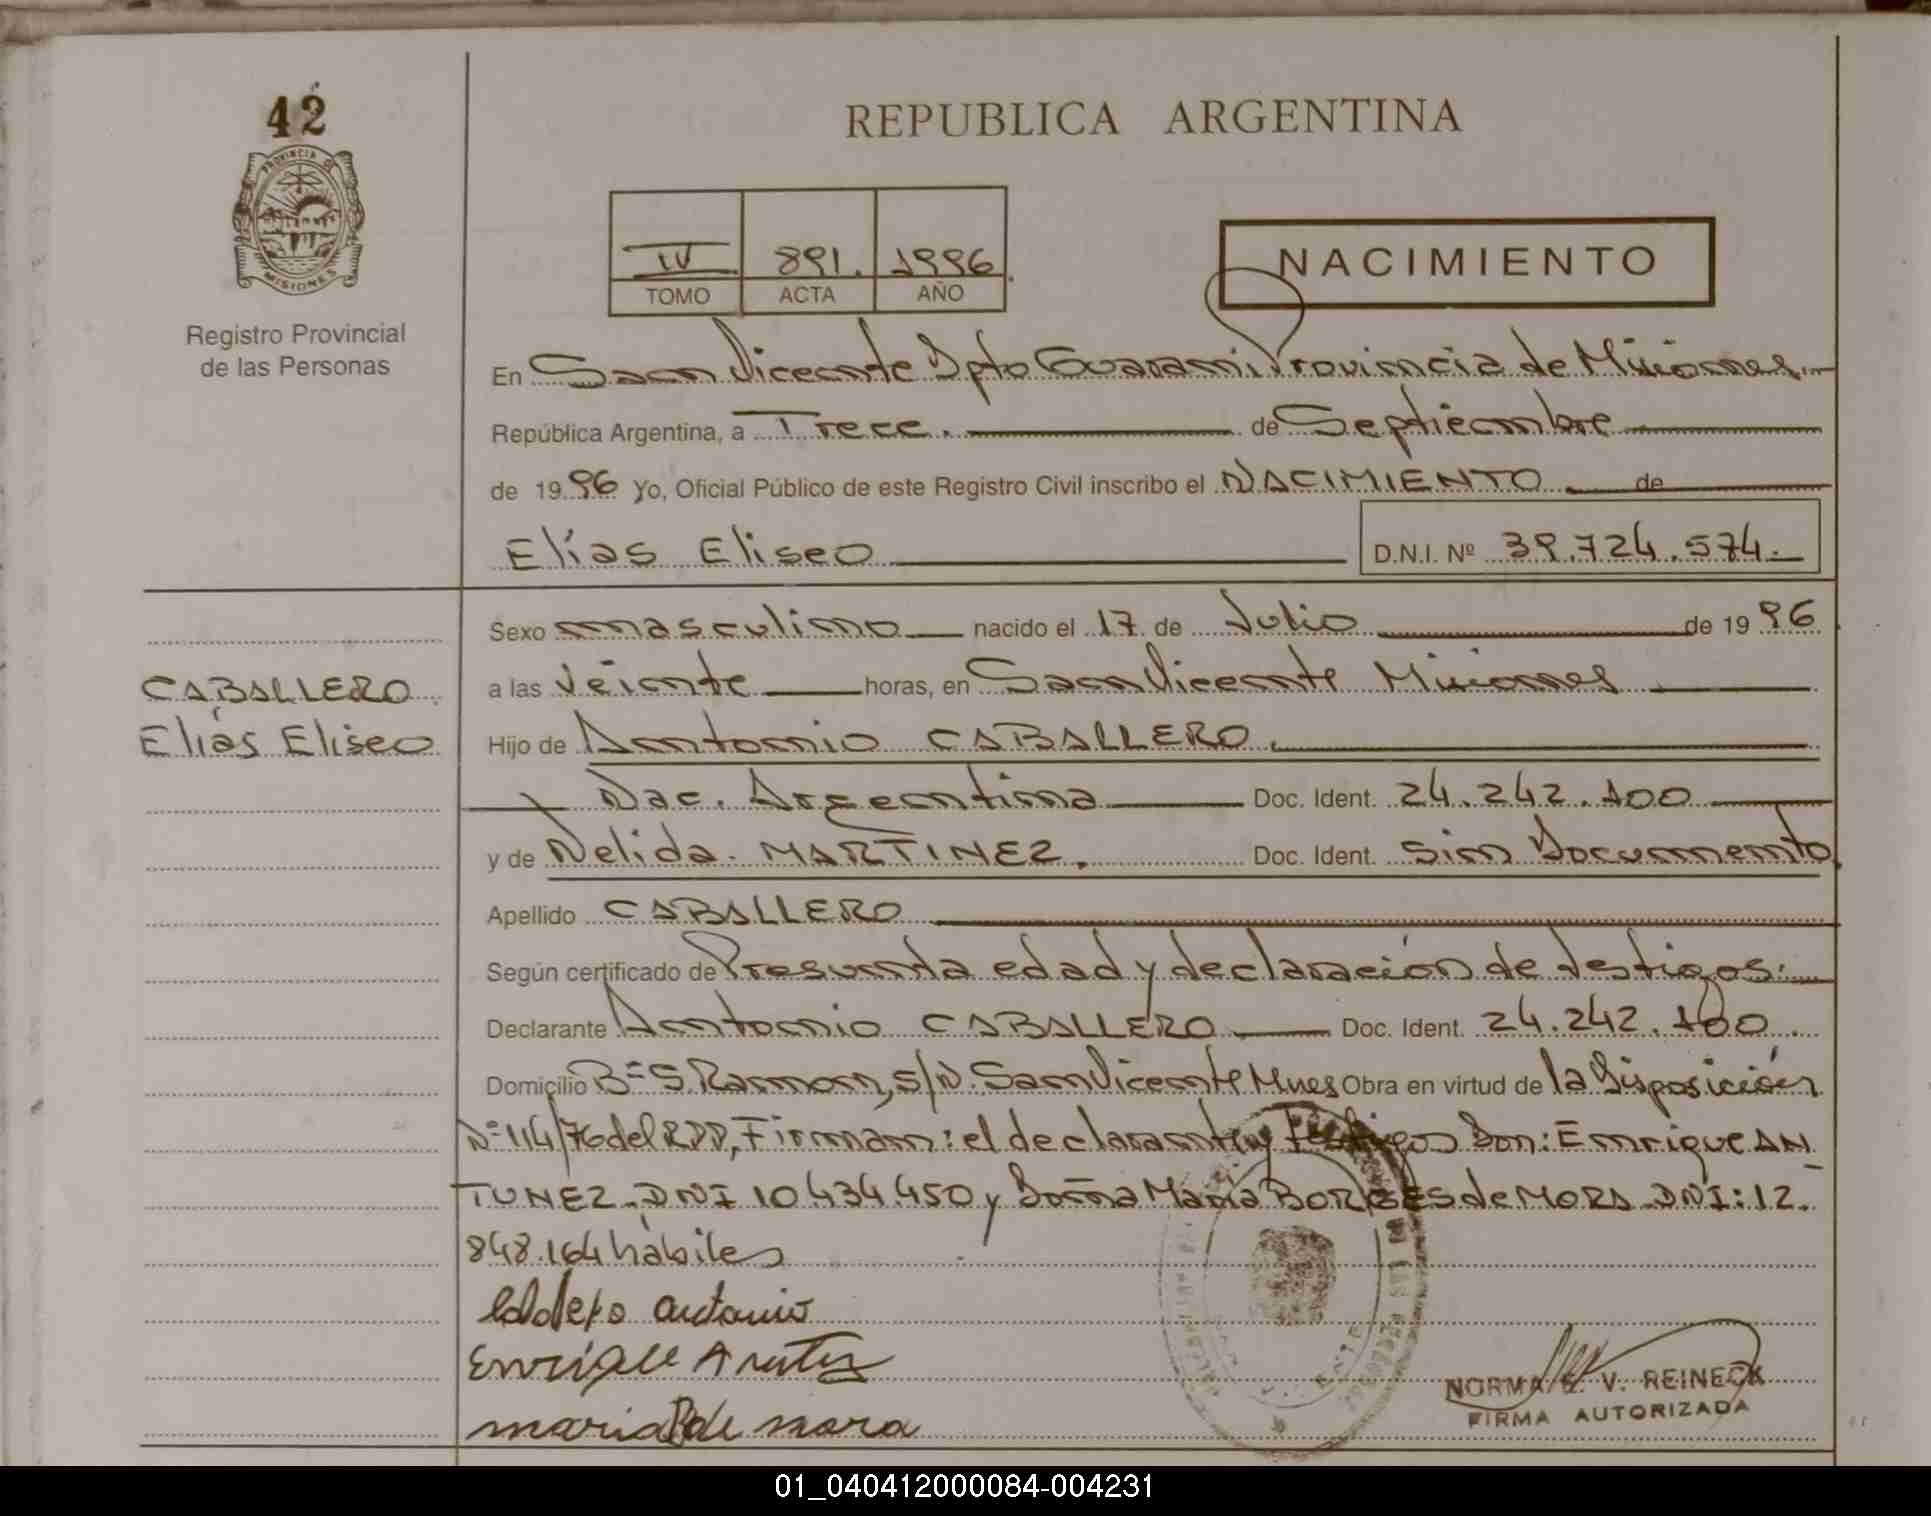 42
REPUBLICA ARGENTINA
PROVINCIA DE
MISIONES
Registro Provincial
de las Personas
IV 891. 1996
TOMO ACTA AÑO
NACIMIENTO
En San Vicente Dpto Guarani Provincia de Misiones.
República Argentina, a Trece. de Septiembre
de 1996 Yo, Oficial Público de este Registro Civil inscribo el NACIMIENTO de
Elías Eliseo D.N.I. Nº 39.724.574.
Sexo masculino nacido el 17 de Julio de 1996
CABALLERO
Elías Eliseo
a las veinte horas, en San Vicente Misiones
Hijo de Antonio CABALLERO.
Nac. Argentina Doc. Ident. 24.242.100
y de Nelida MARTINEZ. Doc. Ident. Sin Documento.
Apellido CABALLERO
Según certificado de Presunta edad y declaración de testigos.
Declarante Antonio CABALLERO Doc. Ident. 24.242.100.
Domicilio Bº S. Ramon, s/N. San Vicente Mnes Obra en virtud de la Disposición
Nº 114/76 del RPP, Firman: el declarante y Testigos Don: Enrique AN
TUNEZ. DNI 10.434.450 y Doña Maria BORGES de MORA DNI: 12.
848.164 hábiles
antonio
Enrique
maria B de mora
NORMA E. V. REINECK
FIRMA AUTORIZADA
01_040412000084-004231